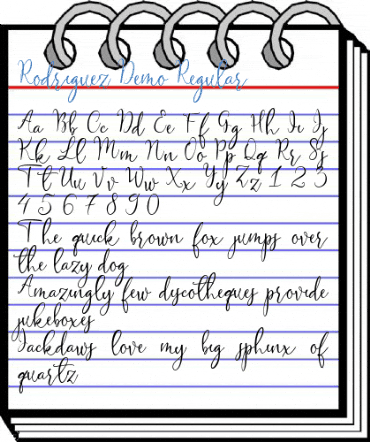 Rodriguez Demo Regular
Aa Bb Cc Dd Ee Ff Gg Hh Ii Jj
Kk Ll Mm Nn Oo Pp Qq Rr Ss
Tt Uu Vv Ww Xx Yy Zz 1 2 3
4 5 6 7 8 9 0
The quick brown fox jumps over
the lazy dog
Amazingly few dycotheques provide
jukeboxes
Jackdaws love my big sphinx of
quartz